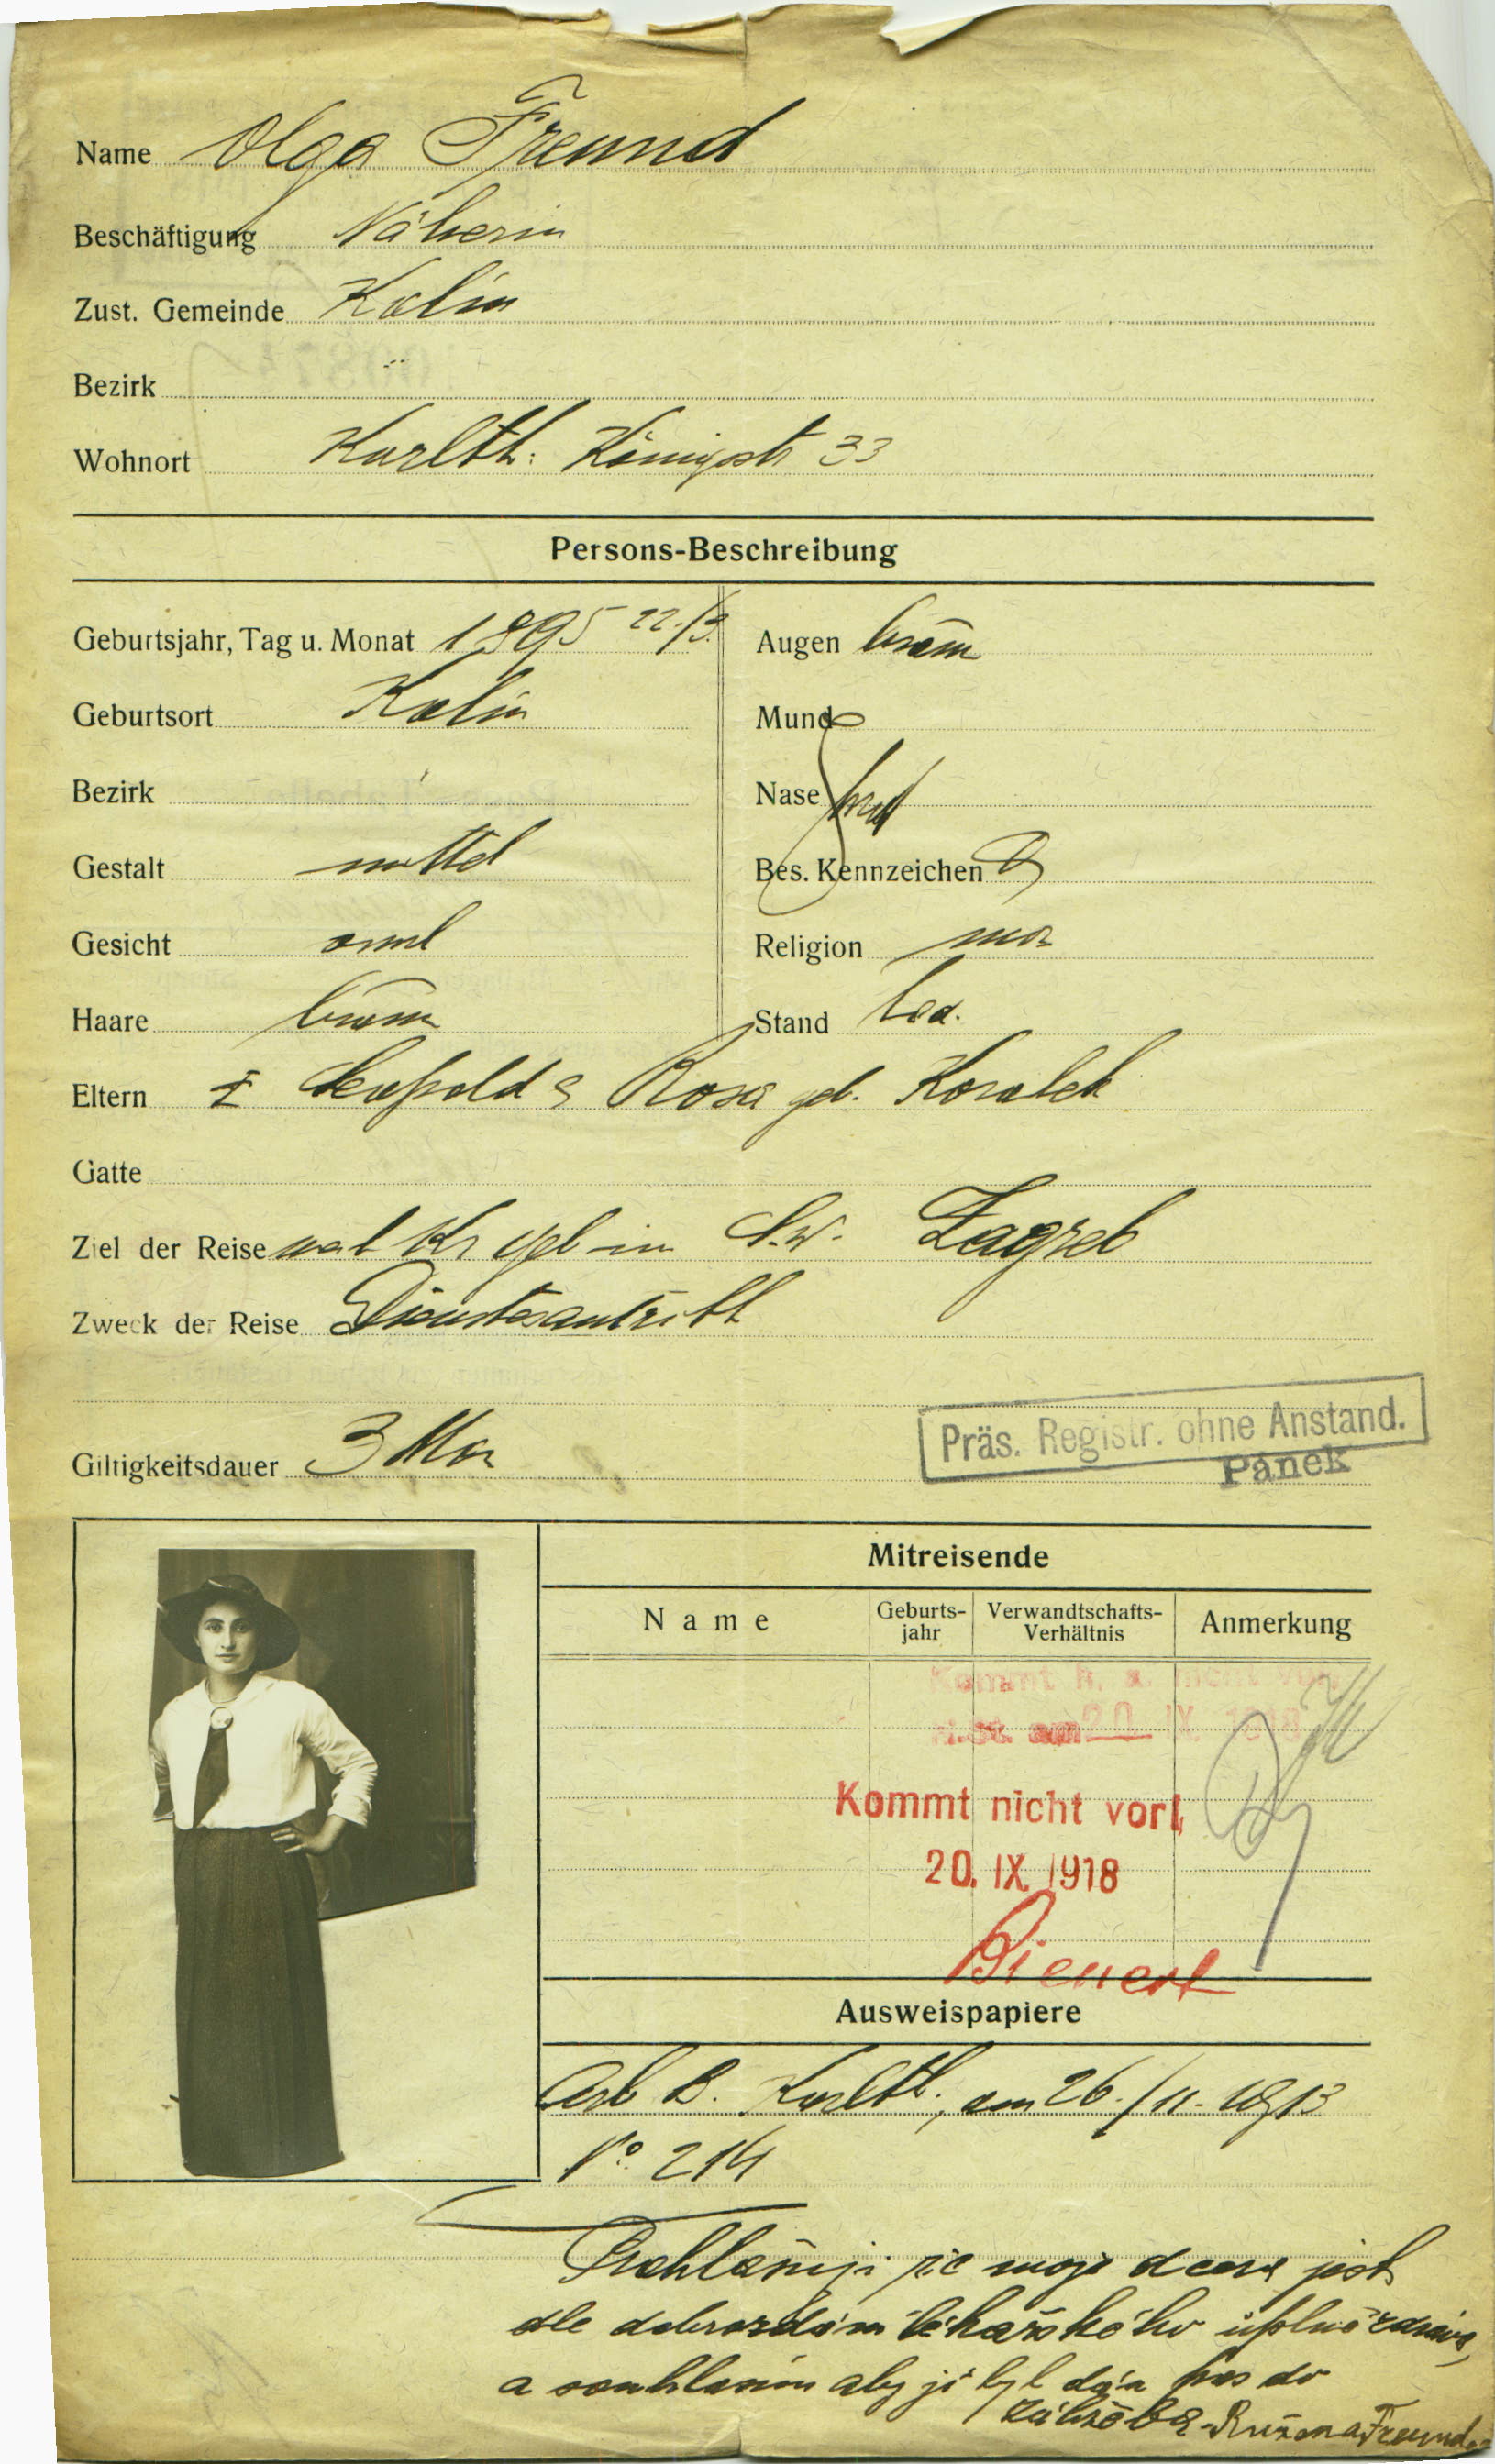 Name Olga Freund
Beschäftigung Näherin
Zust. Gemeinde Kolin
Bezirk
Wohnort Karlth: Königstr 33
Persons-Beschreibung
Geburtsjahr, Tag u. Monat 1895 22./3.
Augen braun
Geburtsort Kolin
Mund
Bezirk
Nase
Gestalt mittel
Bes. Kennzeichen
Gesicht oval
Religion mos
Haare braun
Stand led.
Eltern Leopold & Rosa geb. Koralek
Gatte
Ziel der Reise in Zagreb
Zweck der Reise Dienstesantritt
Präs. Registr. ohne Anstand.
Pánek
Giltigkeitsdauer 3 Mon
Mitreisende
Name
Geburts-jahr
Verwandtschafts-Verhältnis
Anmerkung
Kommt h. a. nicht vor.
am 20. IX. 1918
Kommt nicht vor
20. IX. 1918
Bienert
Ausweispapiere
Arb B. Karlth., am 26./11. 1913
No. 214
Prohlašuji že moje dcera jest
dle dobrozdání lékařského úplně zdráva,
a souhlasím aby jí byl dán pas do
Záhřeba - Růžena Freund